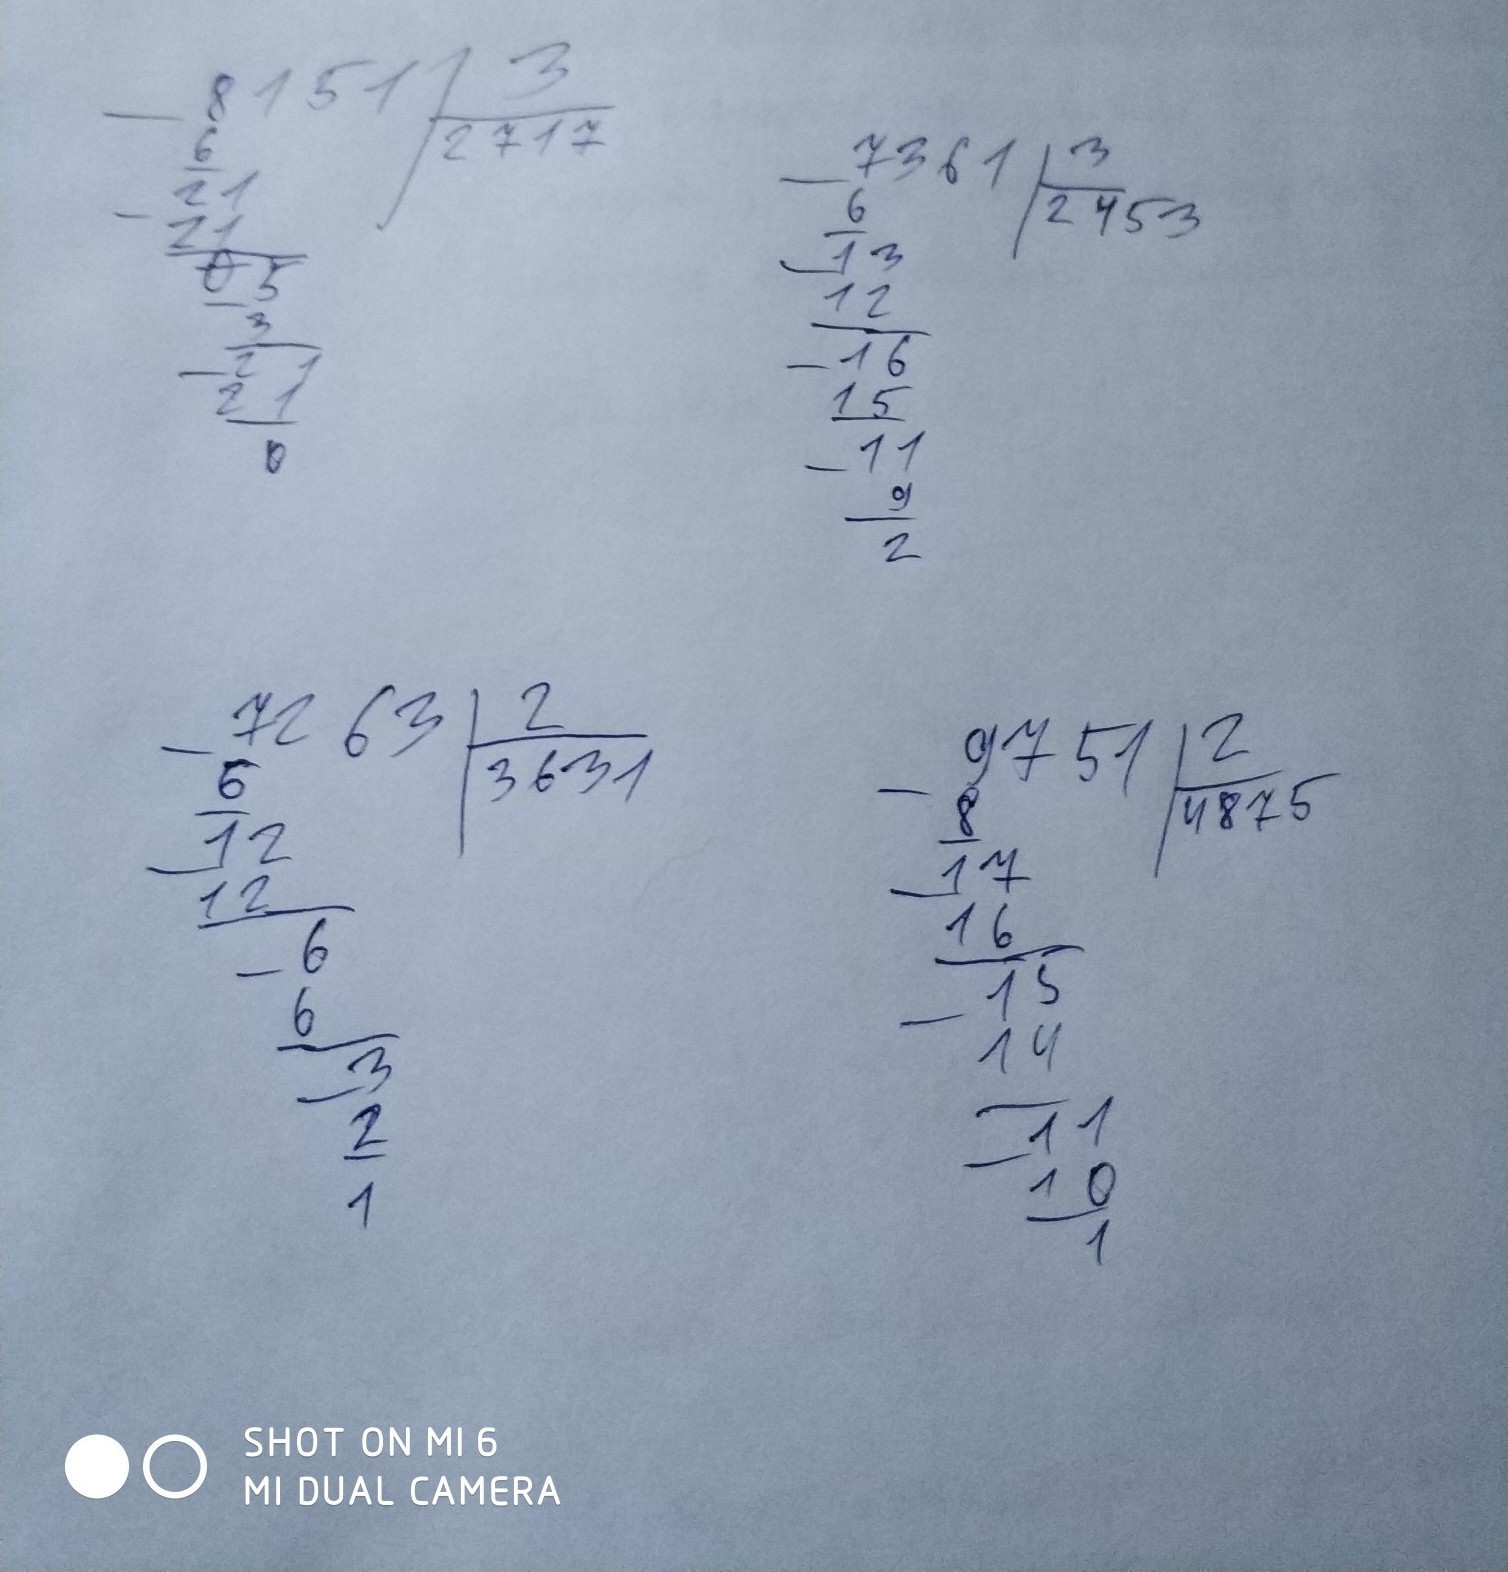 8151 3
2717
6
21
21
05
3
21
21
0
7361 3
2453
6
13
12
16
15
11
9
2
7263 2
3631
6
12
12
6
6
3
2
1
9751 2
4875
8
17
16
15
14
11
10
1
SHOT ON MI 6
MI DUAL CAMERA